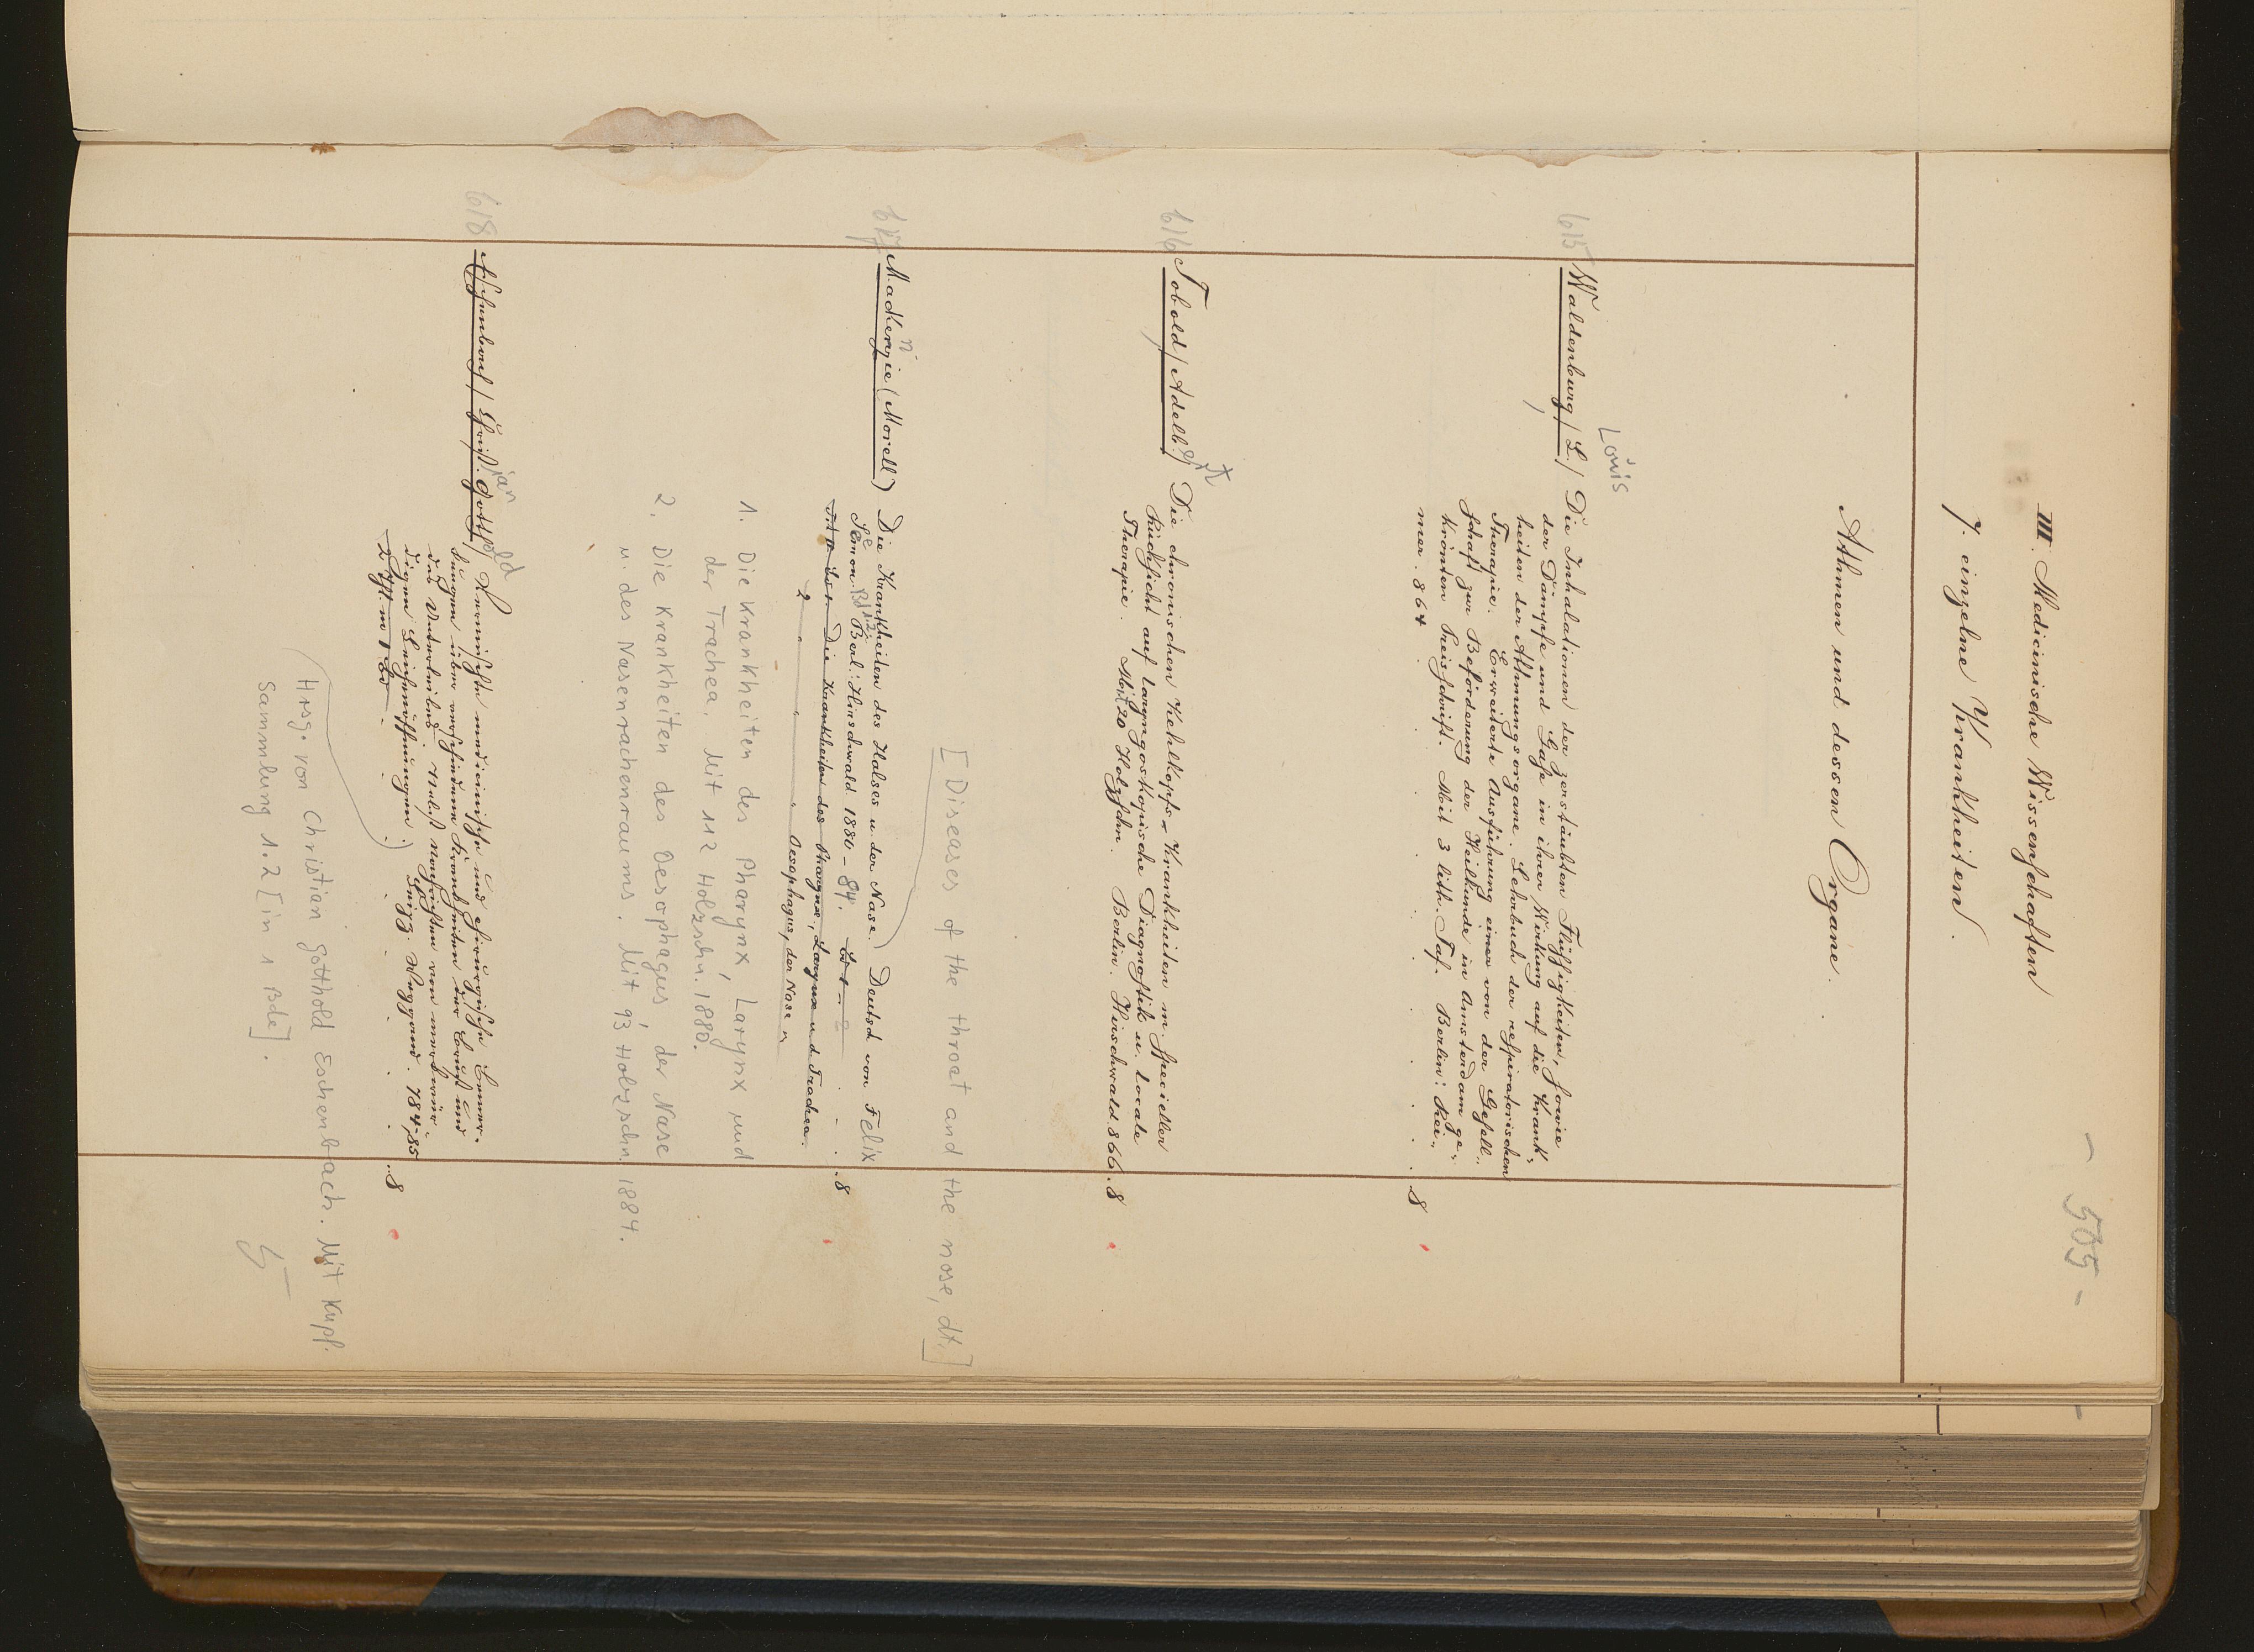 - 505 -
III. Medicinische Wissenschaften
7. einzelne Krankheiten.
Athmen und dessen Organe.
Louis
615 Waldenburg / L. / Die Inhalationen der zerstäubten Flüssigkeiten, sowie
der Dämpfe und Gase in ihrer Wirkung auf die Krank-
heiten der Athmungsorgane. Lehrbuch der respiratorischen
Therapie. Erweiterte Ausführung einer von der Gesell-
schaft zur Beförderung der Heilkunde in Amsterdam ge-
krönten Preisschrift. Mit 3 lith. Taf. Berlin: Rei-
mer. 864 . . . . . . . 8
616 Tobold / Adelbert / Die chronischen Kehlkopfs-Krankheiten m. specieller
Rücksicht auf laryngoskopische Diagnostik u. locale
Therapie. Mit 20 Holzschn. Berlin. Hirschwald 866. 8
[Diseases of the throat and the nose, dt.]
617 Mackenzie (Morell) Die Krankheiten des Halses u. der Nase. Deutsch von Felix
Semon. Bd 1.2. Berl: Hirschwald 1880-84. Bd 1-2 . . . 8
Die Krankheiten des Pharynx, Larynx u. d. Trachea.
2 " " " Oesophagus, der Nase u
1. Die Krankheiten des Pharynx, Larynx und
der Trachea. Mit 112 Holzschn. 1880.
2. Die Krankheiten des Oesophagus, der Nase
u. des Nasenrachenraums. Mit 93 Holzschn. 1884.
618 Eschenbach / Christian Gotthold / Vermischte medicinische und chirurgische Bemer-
kungen über verschiedene Krankheiten der Brust und
des Unterleibes. Nebst Nachrichten von merkwür-
digen Leichenöffnungen. Leipzg. Weygand. 784-85
2 Thl. in 1 Bde . . . . . . 8
Hrsg. von Christian Gotthold Eschenbach. Mit Kupf.
Sammlung 1.2 [in 1 Bde].